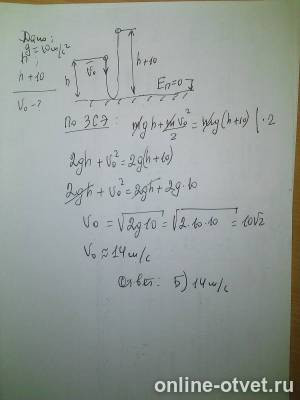 Дано:
g=10м/с²
h
h+10
v₀-?
h
v₀
h+10
Eп=0
По ЗСЭ: mgh + mv₀²/2 = mg(h+10) | ·2
2gh + v₀² = 2g(h+10)
2gh + v₀² = 2gh + 2g·10
v₀ = √2g·10 = √2·10·10 = 10√2
v₀ ≈ 14м/с
Ответ: Б) 14м/с
online-otvet.ru